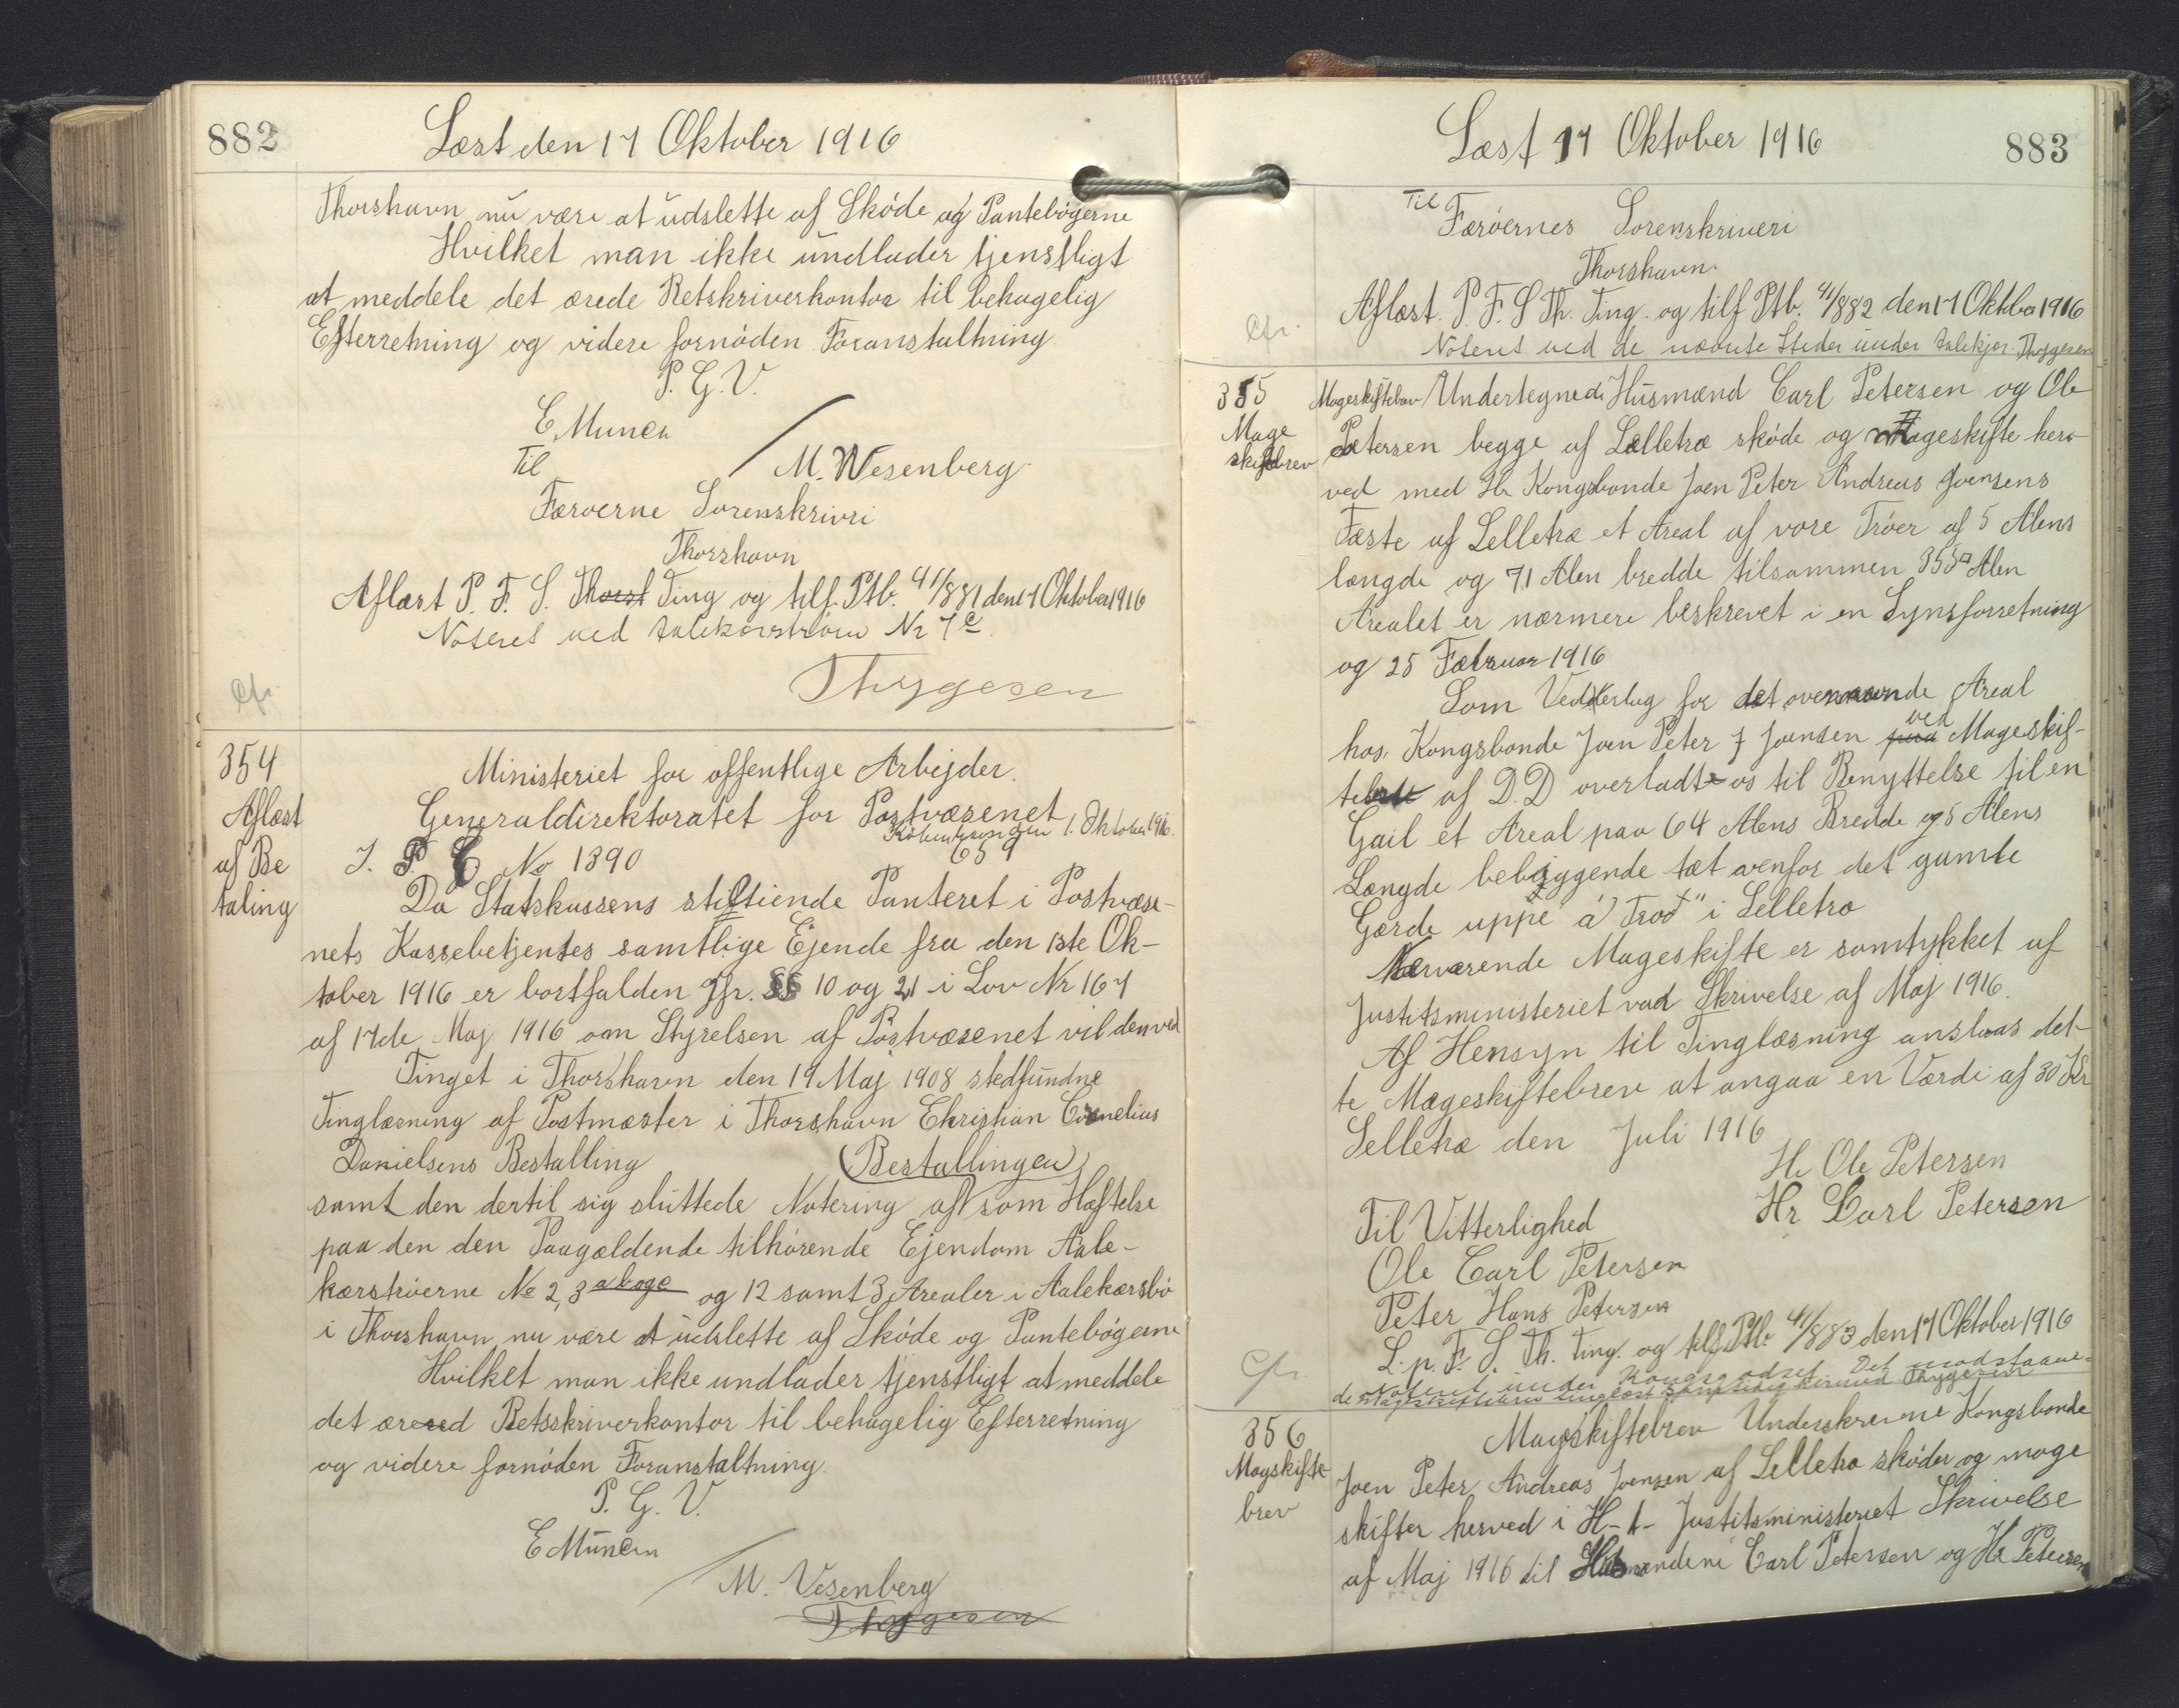 882
Læst den 17 Oktober 1916
Thorshavn nu være at udslette af Skøde og Pantebøgerne
Hvilket man ikke undlader tjenstligt
at meddele det ærede Retskriverkontor til behagelig
Efterretning og videre fornøden Foranstaltning
P. G. V.
E Munch
M. Wesenberg
Til
Færøerne Sorenskriveri
Thorshavn
Aflæst P. F. S. Thorst Ting og tilf. Ptb. 41/881 den 17 Oktober 1916
Noteret ved Nr 7 c.
Thygesen
Cfr.
354
Aflæst
af Be
taling
Ministeriet for offentlige Arbejder.
Generaldirektoratet for Postvæsenet
København den 1. Oktober 1916.
J. P. C No 1390
659
Da Statskassens stiltiende Panteret i Postvæse-
nets Kassebetjentes samtlige Ejende fra den 1ste Ok-
tober 1916 er bortfalden Jfr. §§ 10 og 21 i Lov Nr 167
af 17de Maj 1916 om Styrelsen af Postvæsenet vil den ved
Tinget i Thorshavn den 19 Maj 1908 stedfundne
Tinglæsning af Postmester i Thorshavn Christian Cornelius
Danielsens Bestalling (Bestallingen)
samt den dertil sig sluttede Notering af som Hæftelse
paa den den Paagældende tilhørende Ejendom Aale-
kærstrøerne No 2, 3 a b og c og 12 samt 3 Arealer i Aalekærsbø
i Thorshavn nu være at udslette af Skøde og Pantebøgerne
Hvilket man ikke undlader tjenstligt at meddele
det æreed Retsskriverkontor til behagelig Efterretning
og videre fornøden Foranstaltning.
P. G. V.
E Munch
M. Vesenberg
Thygesen
Læst 17 Oktober 1916
883
Til
Færøernes Sorenskriveri
Thorshavn.
Aflæst. P. F. S Th. Ting. og tilf Ptb. 41/882 den 17 Oktober 1916
Noteret ved de nævnte Steder under Aalekjær. Thygesen
Cfr.
355
Mage
skiftebrev
Mageskiftebrev Undertegnede Husmænd Carl Petersen og Ole
Petersen begge af Lelletræ skøde og Mageskifte her-
ved med Hr Kongsbonde Joen Peter Andreas Joensens
Fæste af Selletræ et Areal af vore Trøer af 5 Alens
længde og 71 Alen bredde tilsammen 355 □ Alen
Arealet er nærmere beskrevet i en Synsforretning
og 25 Februar 1916
Som Vederlag for det ovennævnde Areal
hos. Kongsbonde Joen Peter J Joensen ved Mageskif-
te af D. D overladte os til Benyttelse til en
Gail et Areal paa 64 Alens Bredde og 5 Alens
Længde tæt ovenfor det gamle
Gærde uppe á Trod" i Selletræ
Nærværende Mageskifte er samtykket af
Justitsministeriet vad Skrivelse af Maj 1916.
Af Hensyn til Tinglæsning anslaas det-
te Mageskiftebrev at angaa en Værdi af 30 Kr
Selletræ den Juli 1916
Hr Ole Petersen
Hr Carl Petersen
Til Vitterlighed
Ole Carl Petersen
Peter Hans Petersen
L. p. F. S. Th. Ting. og tilf Ptb. 41/883 den 17 Oktober 1916
Noteret under Kongsgodset. Det modstaaen-
de Mageskiftebrev tinglæst samtidig hermed Thygesen
Cfr.
356
Magskifte
brev
Mageskiftebrev Underskrevne Kongsbonde
Joen Peter Andreas Joensen af Selletræ skøder og mage
skifter herved i H- t- Justitsministeriet Skrivelse
af Maj 1916 til Husmændene Carl Petersen og Hr Petersen